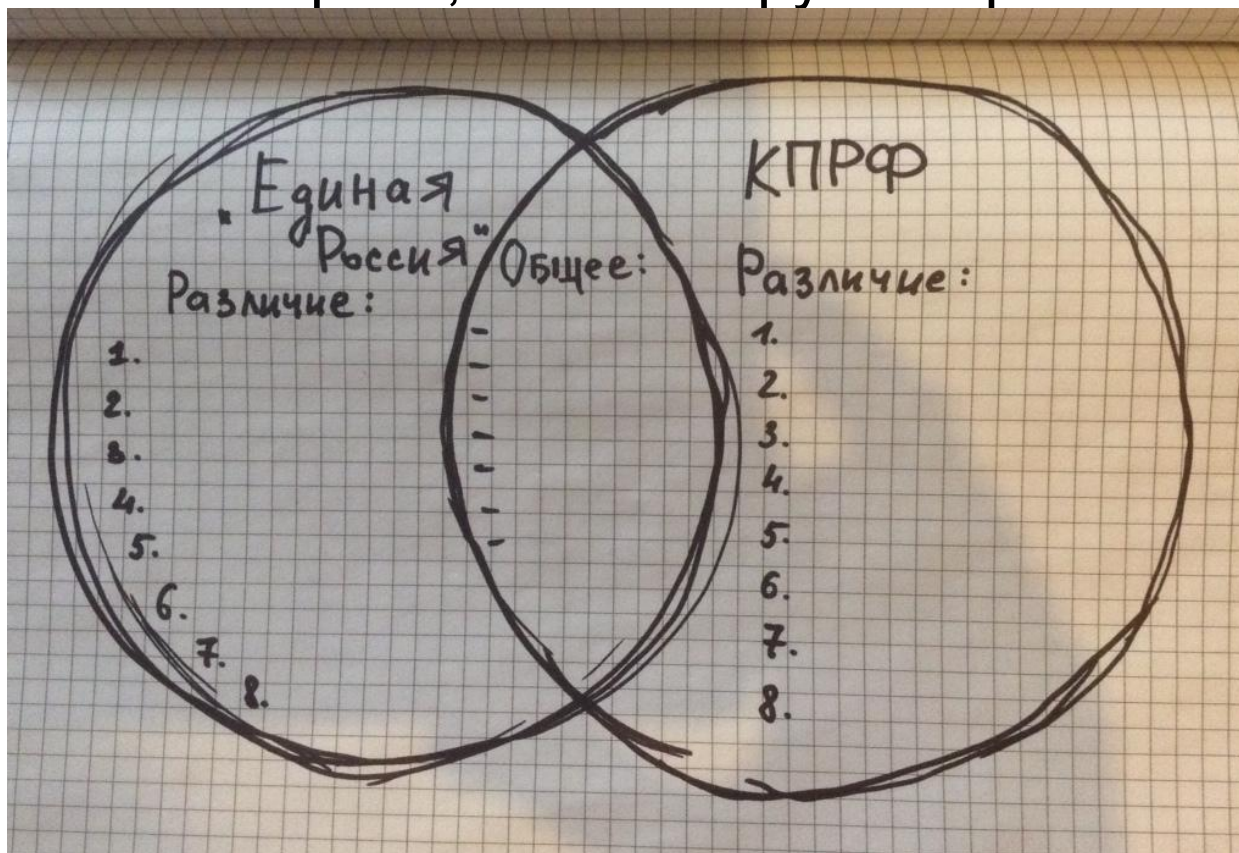 "Единая
Россия"
Различие:
1.
2.
3.
4.
5.
6.
7.
8.
Общее:
-
-
-
-
-
-
-
КПРФ
Различие:
1.
2.
3.
4.
5.
6.
7.
8.